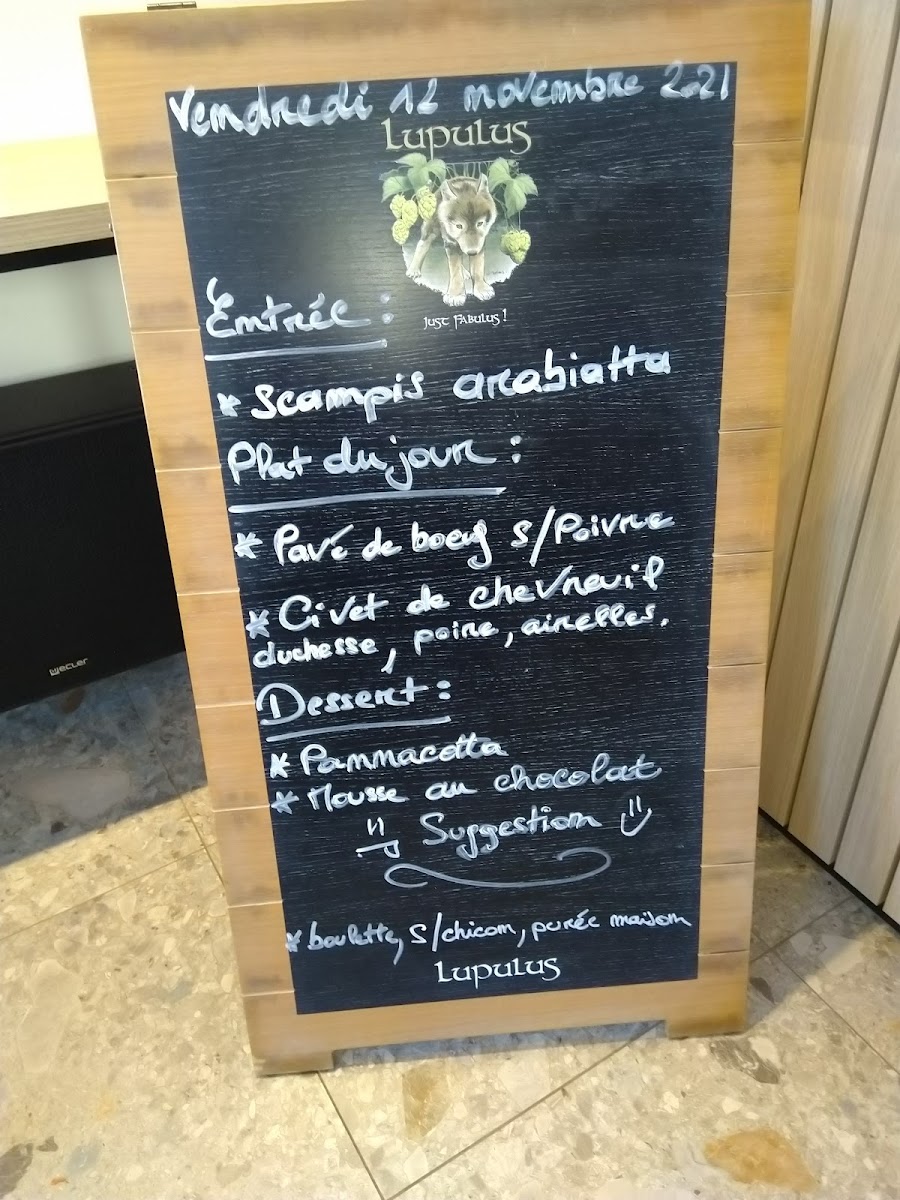 Vendredi 12 novembre 2021
Lupulus
Just Fabulus !
Entrée :
* Scampis arrabiatta
Plat du jour :
* Pavé de boeuf s/Poivre
* Civet de chevreuil
duchesse, poire, airelles.
Dessert :
* Pannacotta
* Mousse au chocolat
Suggestion
* boulette, s/chicon, purée maison
Lupulus
ECLER